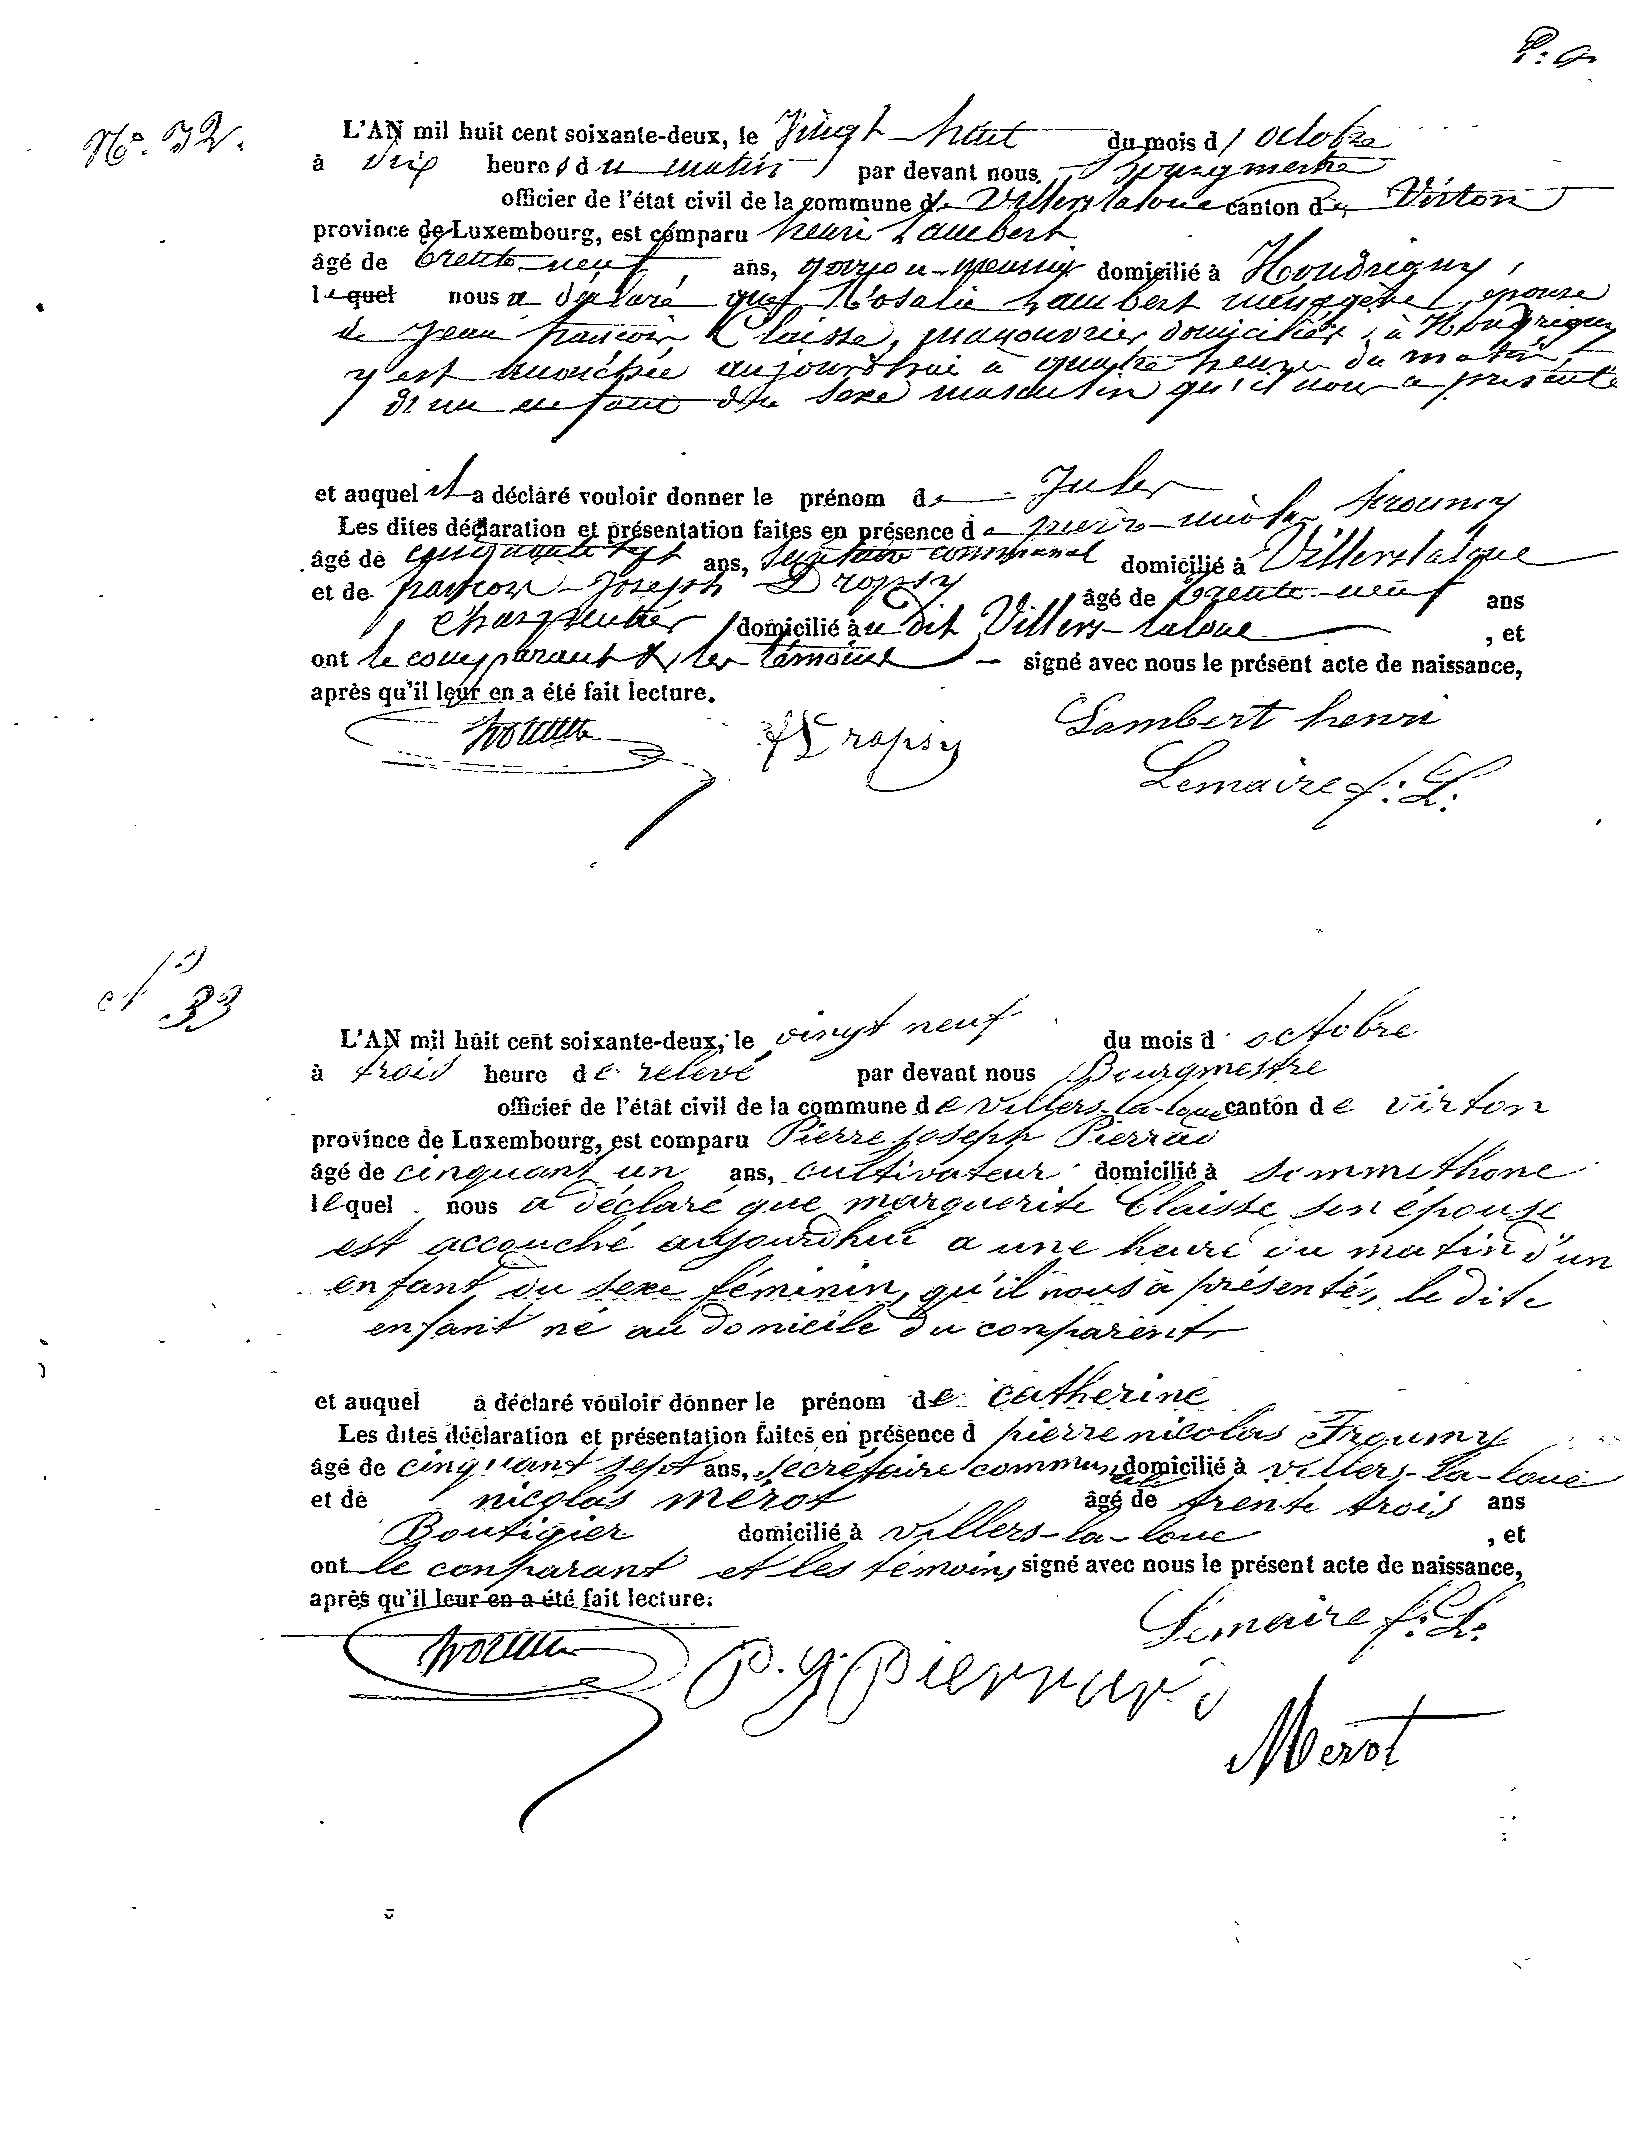 P. 9.
N° 32.
L'AN mil huit cent soixante-deux, le Vingt-huit du mois d'octobre
à dix heures du matin par devant nous Bourgmestre
officier de l'état civil de la commune de Villerslaloue canton de Virton
province de Luxembourg, est comparu henri Lambert
âgé de trente-neuf ans, garçon-meunier domicilié à Houdrigny,
lequel nous a déclaré que Rosalie Lambert ménagère, épouse
de jean françois Claisse, manouvrier domiciliés à Houdrigny
y est accouchée aujourd'hui à quatre heures du matin,
d'un enfant du sexe masculin qu'il nous a présenté
et auquel il a déclaré vouloir donner le prénom de Jules
Les dites déclaration et présentation faites en présence de pierre-nicolas froumy
âgé de cinquante sept ans, secrétaire communal domicilié à Villerslaloue
et de françois-Joseph Dropsy âgé de trente-neuf ans
charpentier domicilié au dit Villers-laloue , et
ont le comparant & les témoins signé avec nous le présent acte de naissance,
après qu'il leur en a été fait lecture.
froumy
Dropsy
Lambert henri
Lemaire f: L:
N° 33
L'AN mil huit cent soixante-deux, le vingt neuf du mois d octobre
à trois heure de relevé par devant nous Bourgmestre
officier de l'état civil de la commune de villers-la-loue canton de virton
province de Luxembourg, est comparu Pierre joseph Pierrad
âgé de cinquant un ans, cultivateur domicilié à sommethone
lequel nous a déclaré que marguerite Claisse son épouse
est accouché aujourdhui a une heure du matin d'un
enfant du sexe féminin, qu'il nous à présentés, le dite
enfant né au domicile du conparent
et auquel a déclaré vouloir donner le prénom de catherine
Les dites déclaration et présentation faites en présence d pierre nicolas Froumy
âgé de cinquant sept ans, secrétaire communale domicilié à villers-la-loue
et de nicolas mérot âgé de trente trois ans
Boutiquier domicilié à villers-la-loue , et
ont le conparant et les témoins signé avec nous le présent acte de naissance,
après qu'il leur en a été fait lecture.
Lemaire f: L:
froumy
P. J. Pierrard
Merot